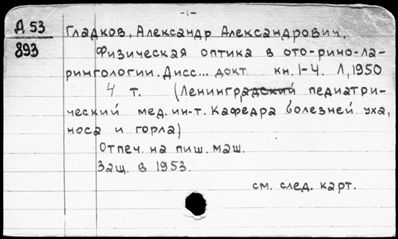 -1-
Д 53
893
Гладков, Александр Александрович.
Физическая оптика в ото-рино-ла-
рингологии. Дисс... докт. кн. 1-4. Л, 1950
4 т. (Ленинградский педиатри-
ческий мед. ин-т. Кафедра болезней уха,
носа и горла)
Отпеч. на пиш. маш.
Защ. в 1953.
см. след. карт.